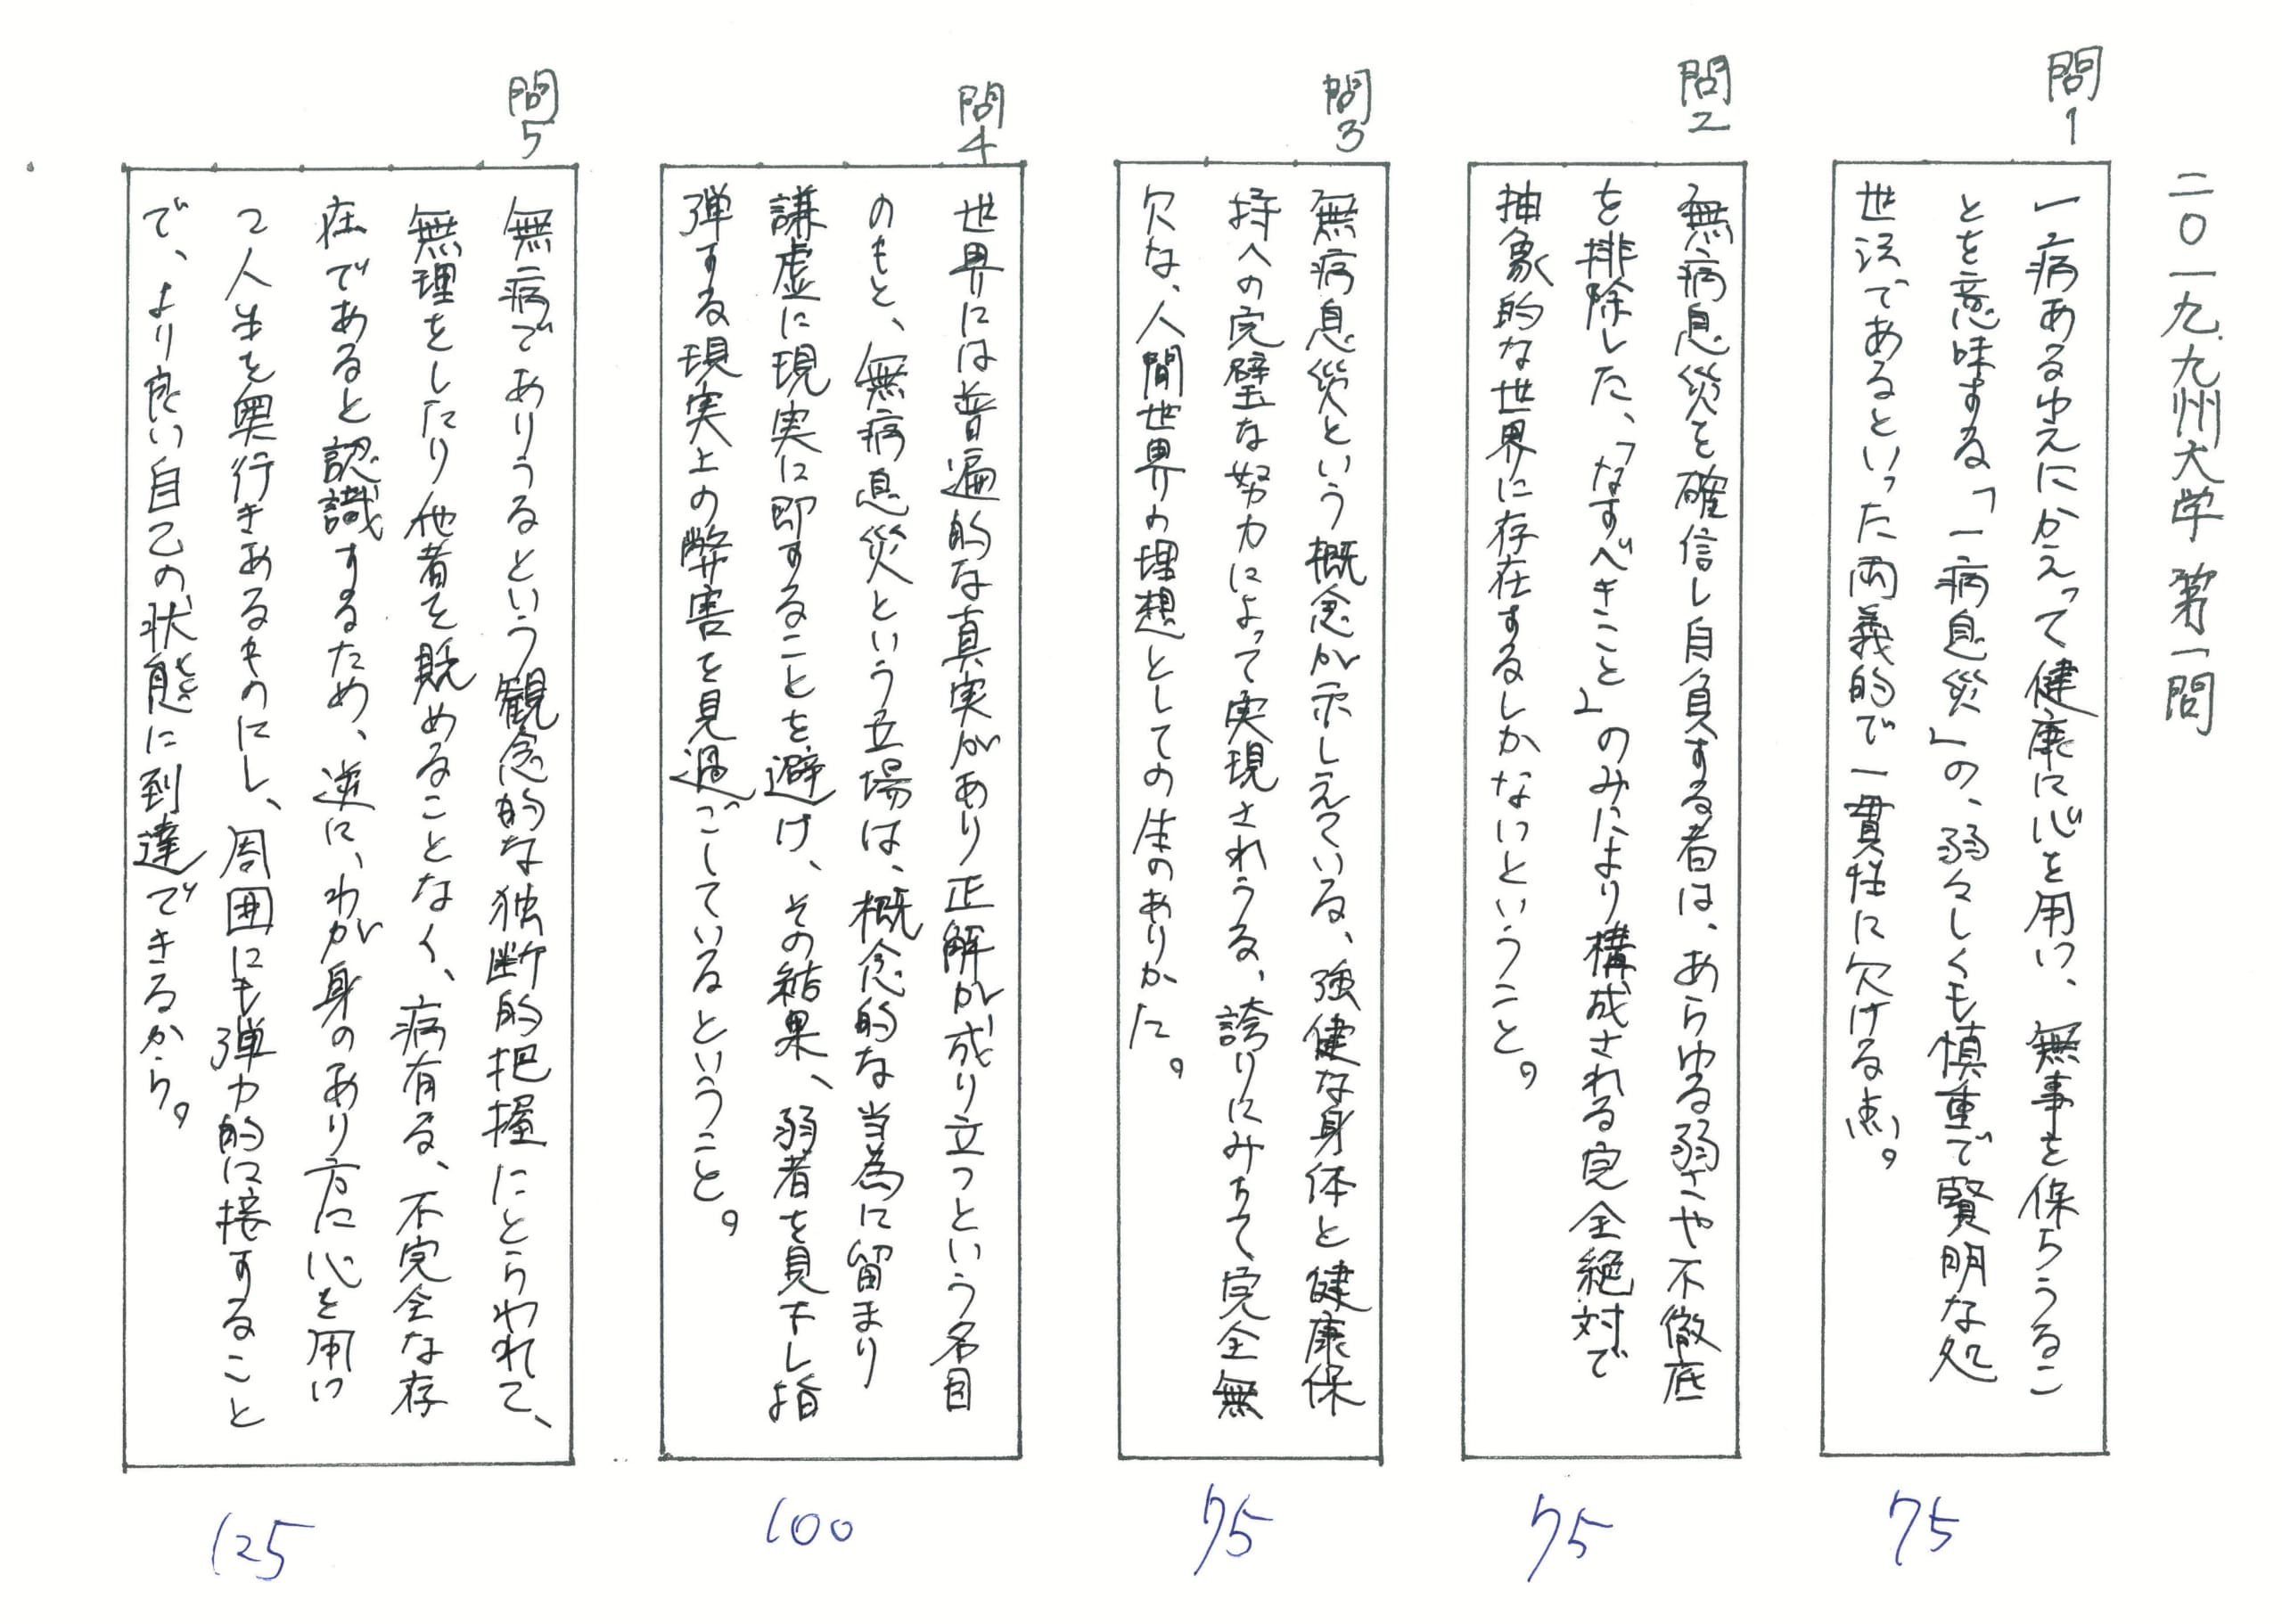 二〇一九 九州大学 第一問
問1
一病あるゆえにかえって健康に心を用い、無事を保ちうるこ
とを意味する「一病息災」の、弱々しくも慎重で賢明な処
世法であるといった両義的で一貫性に欠ける点。
75
問2
無病息災を確信し自負する者は、あらゆる弱さや不徹底
を排除した、「なすべきこと」のみにより構成される完全絶対で
抽象的な世界に存在するしかないということ。
75
問3
無病息災という概念が示しえている、強健な身体と健康保
持への完璧な努力によって実現されうる、誇りにみちて完全無
欠な、人間世界の理想としての生のありかた。
75
問4
世界には普遍的な真実があり正解が成り立つという名目
のもと、無病息災という立場は、概念的な当為に留まり
謙虚に現実に即することを避け、その結果、弱者を見下し指
弾する現実上の弊害を見過ごしているということ。
100
問5
無病でありうるという観念的な独断的把握にとらわれて、
無理をしたり他者を貶めることなく、病有る、不完全な存
在であると認識するため、逆に、わが身のあり方に心を用い
つ人生を奥行きあるものにし、周囲にも弾力的に接すること
で、より良い自己の状態に到達できるから。
125